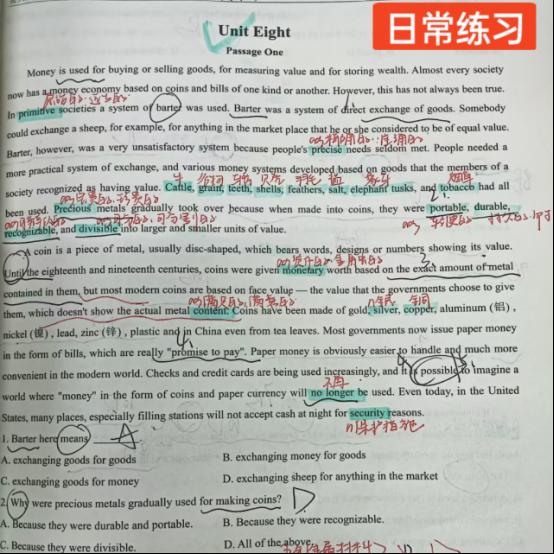 日常练习
Unit Eight
Passage One
Money is used for buying or selling goods, for measuring value and for storing wealth. Almost every society
now has a money economy based on coins and bills of one kind or another. However, this has not always been true.
In primitive societies a system of barter was used. Barter was a system of direct exchange of goods. Somebody
could exchange a sheep, for example, for anything in the market place that he or she considered to be of equal value.
Barter, however, was a very unsatisfactory system because people's precise needs seldom met. People needed a
more practical system of exchange, and various money systems developed based on goods that the members of a
society recognized as having value. Cattle, grain, teeth, shells, feathers, salt, elephant tusks, and tobacco had all
been used. Precious metals gradually took over because when made into coins, they were portable, durable,
recognizable, and divisible into larger and smaller units of value.
A coin is a piece of metal, usually disc-shaped, which bears words, designs or numbers showing its value.
Until the eighteenth and nineteenth centuries, coins were given monetary worth based on the exact amount of metal
contained in them, but most modern coins are based on face value — the value that the governments choose to give
them, which doesn't show the actual metal content. Coins have been made of gold, silver, copper, aluminum (铝) ,
nickel (镍) , lead, zinc (锌) , plastic and in China even from tea leaves. Most governments now issue paper money
in the form of bills, which are really "promise to pay". Paper money is obviously easier to handle and much more
convenient in the modern world. Checks and credit cards are being used increasingly, and it is possible to imagine a
world where "money" in the form of coins and paper currency will no longer be used. Even today, in the United
不再
States, many places, especially filling stations will not accept cash at night for security reasons.
1. Barter here means A
A. exchanging goods for goods B. exchanging money for goods
C. exchanging goods for money D. exchanging sheep for anything in the market
2. Why were precious metals gradually used for making coins? D
A. Because they were durable and portable. B. Because they were recognizable.
C. Because they were divisible. D. All of the above.